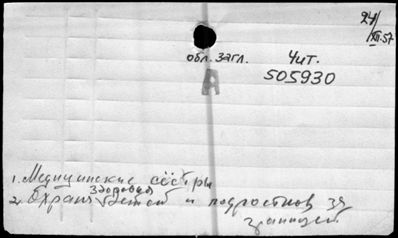 24/XII.57
обл. загл. Чит.
505930
А
1. Медицинские сёстры
здоровья
2. Охрана детей и подростков за
границей